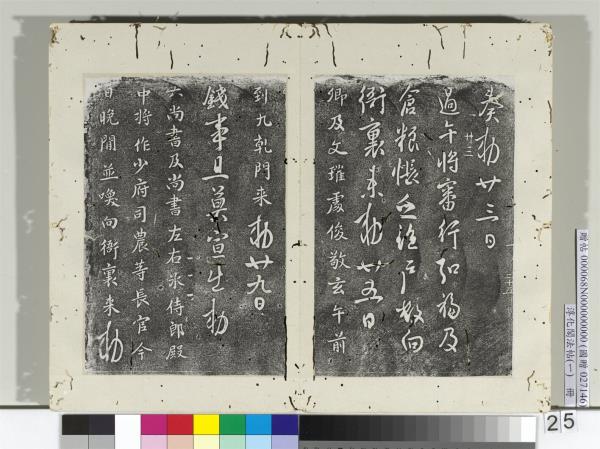 癸勅廿三日
廿三
過午將軍行弘福及
倉粮帳亞諸戶敎向
衙裏來勅廿五日
卿及文瓘處俊敬玄午前
到九乹門來勅廿九日
錢事且莫宣生勅
六尚書及尚書左右丞侍郎殿
中將作少府司農等長官今
日晚間並喚向衙裏來勅
贈帖 000068N000000000 (國贈 027146)
淳化閣法帖(一) 冊
25